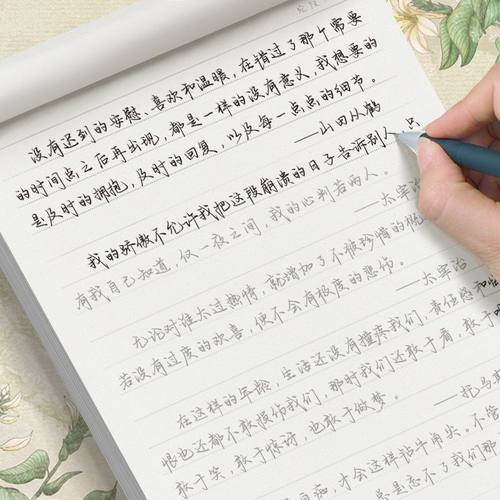 没有迟到的安慰、喜欢和温暖，在错过了那个需要
的时间点之后再出现，都是一样的没有意义，我想要的
是及时的拥抱，及时的回复，以及每一点点的细节。
——山田从鹤
我的骄傲不允许我把这段崩溃的日子告诉别人，只
有我自己知道，仅一夜之间，我的心判若两人。
——太宰治
无论对谁太过热情，就增加了不被珍惜的概
若没有过度的欢喜，便不会有极度的悲伤。
——太宰治
在这样的年龄，生活还没有摧残我们，责任感和
恨也还都不敢损伤我们，那时我们还敢于看，敢于
敢于笑，敢于惊讶，也敢于做梦。
——托马
才会这样钻牛角尖。不管
总是忘不了我们那